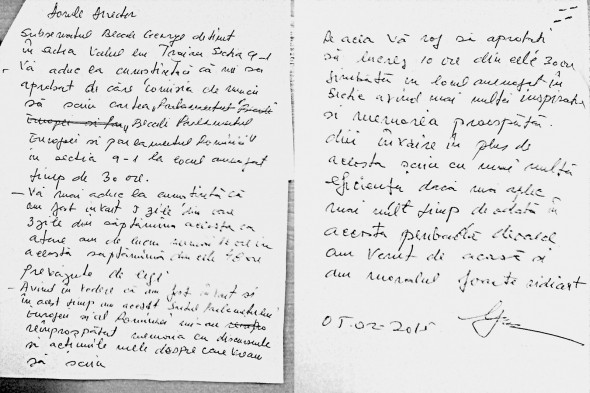 Domnule Director
Subsemnatul Becali George detinut
în sectia Valul lui Traian Sectia 9-1
- Vă aduc la cunostintă că mi sa
aprobat de către Comisia de muncă
să scriu cartea Parlamentul
Europei si Becali Parlamentul
Europei si parlamentul României"
in sectia 9-1 la locul amenajat
timp de 30 ore.
- Vă mai aduc la cunostintă că
am fost învoit 5 zile din care
3 zile din săptămîna aceasta ca
atare am de lucru numai ore in
această saptămînă din cele 40 ore
prevazute de lege
- Avînd in vedere că am fost învoit si
in acest timp am accesat Siteul Parlamentului
Europei si al României mi-am
reîmprospătat memoria cu discursurile
si actiunile mele despre care vream
să scriu
De aceia Vă rog si aprobati
să lucrez 10 ore din cele 30 ore
simbătă in locul amenajat în
sectie avînd mai multă inspiratie
si memorea proaspătă.
din învoire în plus de
aceasta scriu cu mai multă
eficientă dacă mă aplic
mai mult timp deodată în
aceasta perioadă deoarece
am venit de acasă si
am moralul foarte ridicat
05-02-2015